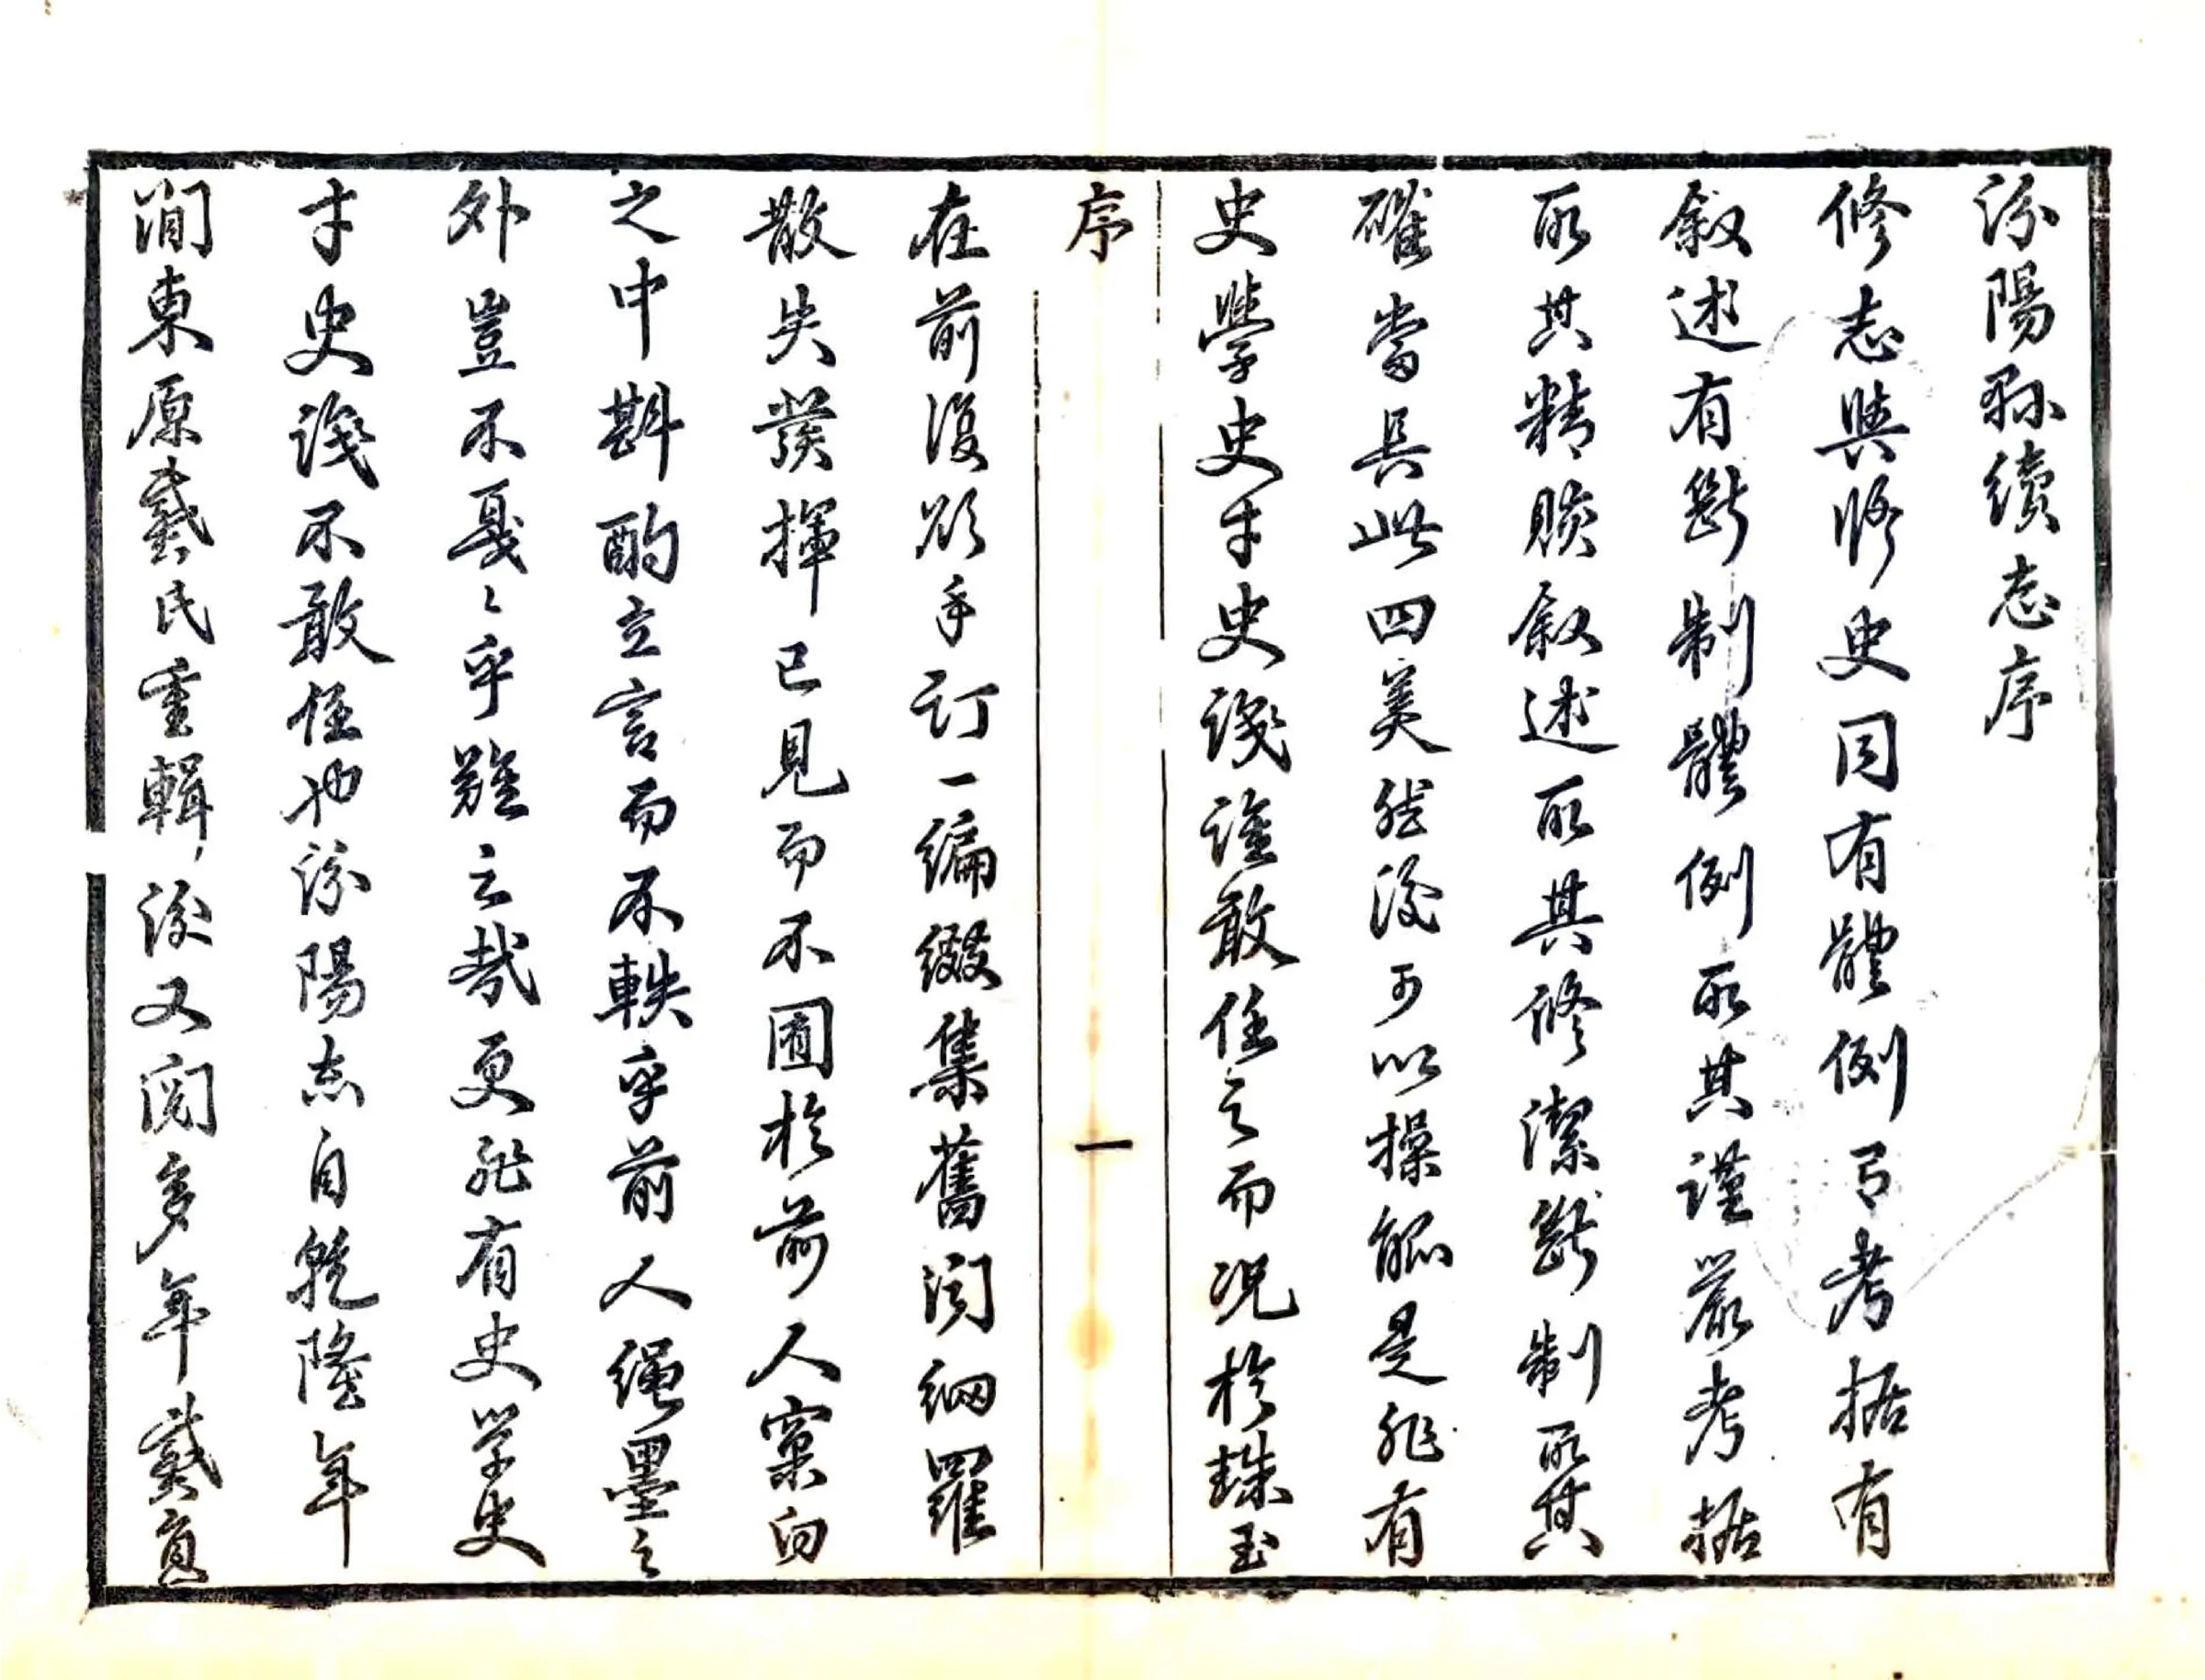 汾陽縣續志序
修志與修史同有體例有考據有
叙述有斷制體例取其謹嚴考據
取其精賅叙述取其修潔斷制取其
確當具此四美然後可以操觚是非有
史學史才史識誰敢任之而况於珠玉
序
一
在前復欲手訂一編綴集舊聞網羅
散失發揮已見而不囿於前人窠臼
之中斟酌立言而不軼乎前人繩墨之
外豈不戛〻乎難之哉更非有史学史
才史識不敢任也汾陽志自乾隆年
間東原戴氏重輯後又閱多年